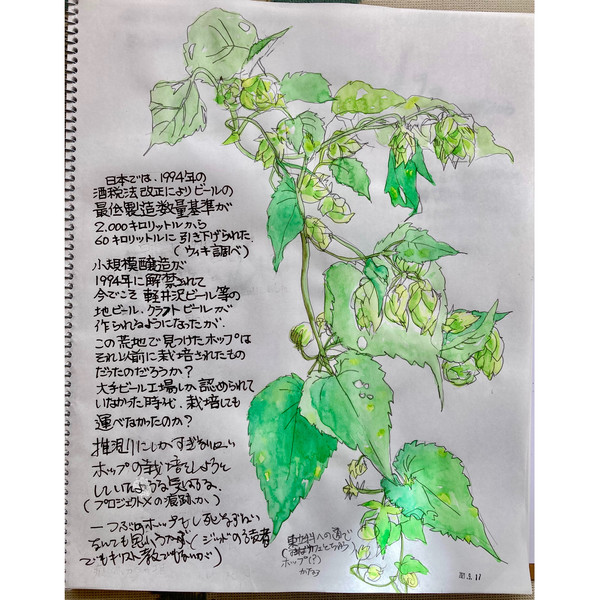 日本では、1994年の
酒税法改正によりビールの
最低製造数量基準が
2,000キロリットルから
60キロリットルに引き下げられた。
(ウィキ調べ)
小規模醸造が
1994年に解禁されて
今でこそ 軽井沢ビール等の
地ビール、クラフトビールが
作られるようになったが、
この荒地で見つけたホップは
それ以前に栽培されたもの
だったのだろうか?
大手ビール工場しか認められて
いなかった時代、栽培しても
運べなかったのか?
推測にしかすぎない
ホップの栽培をしようと
していたような気がする。
(プロジェクトXの痕跡か)
一つぶのホップもし死なずば
なんても思いうかぶ (ジッドの読者
でもキリスト教でもないが)
ホップ(?)